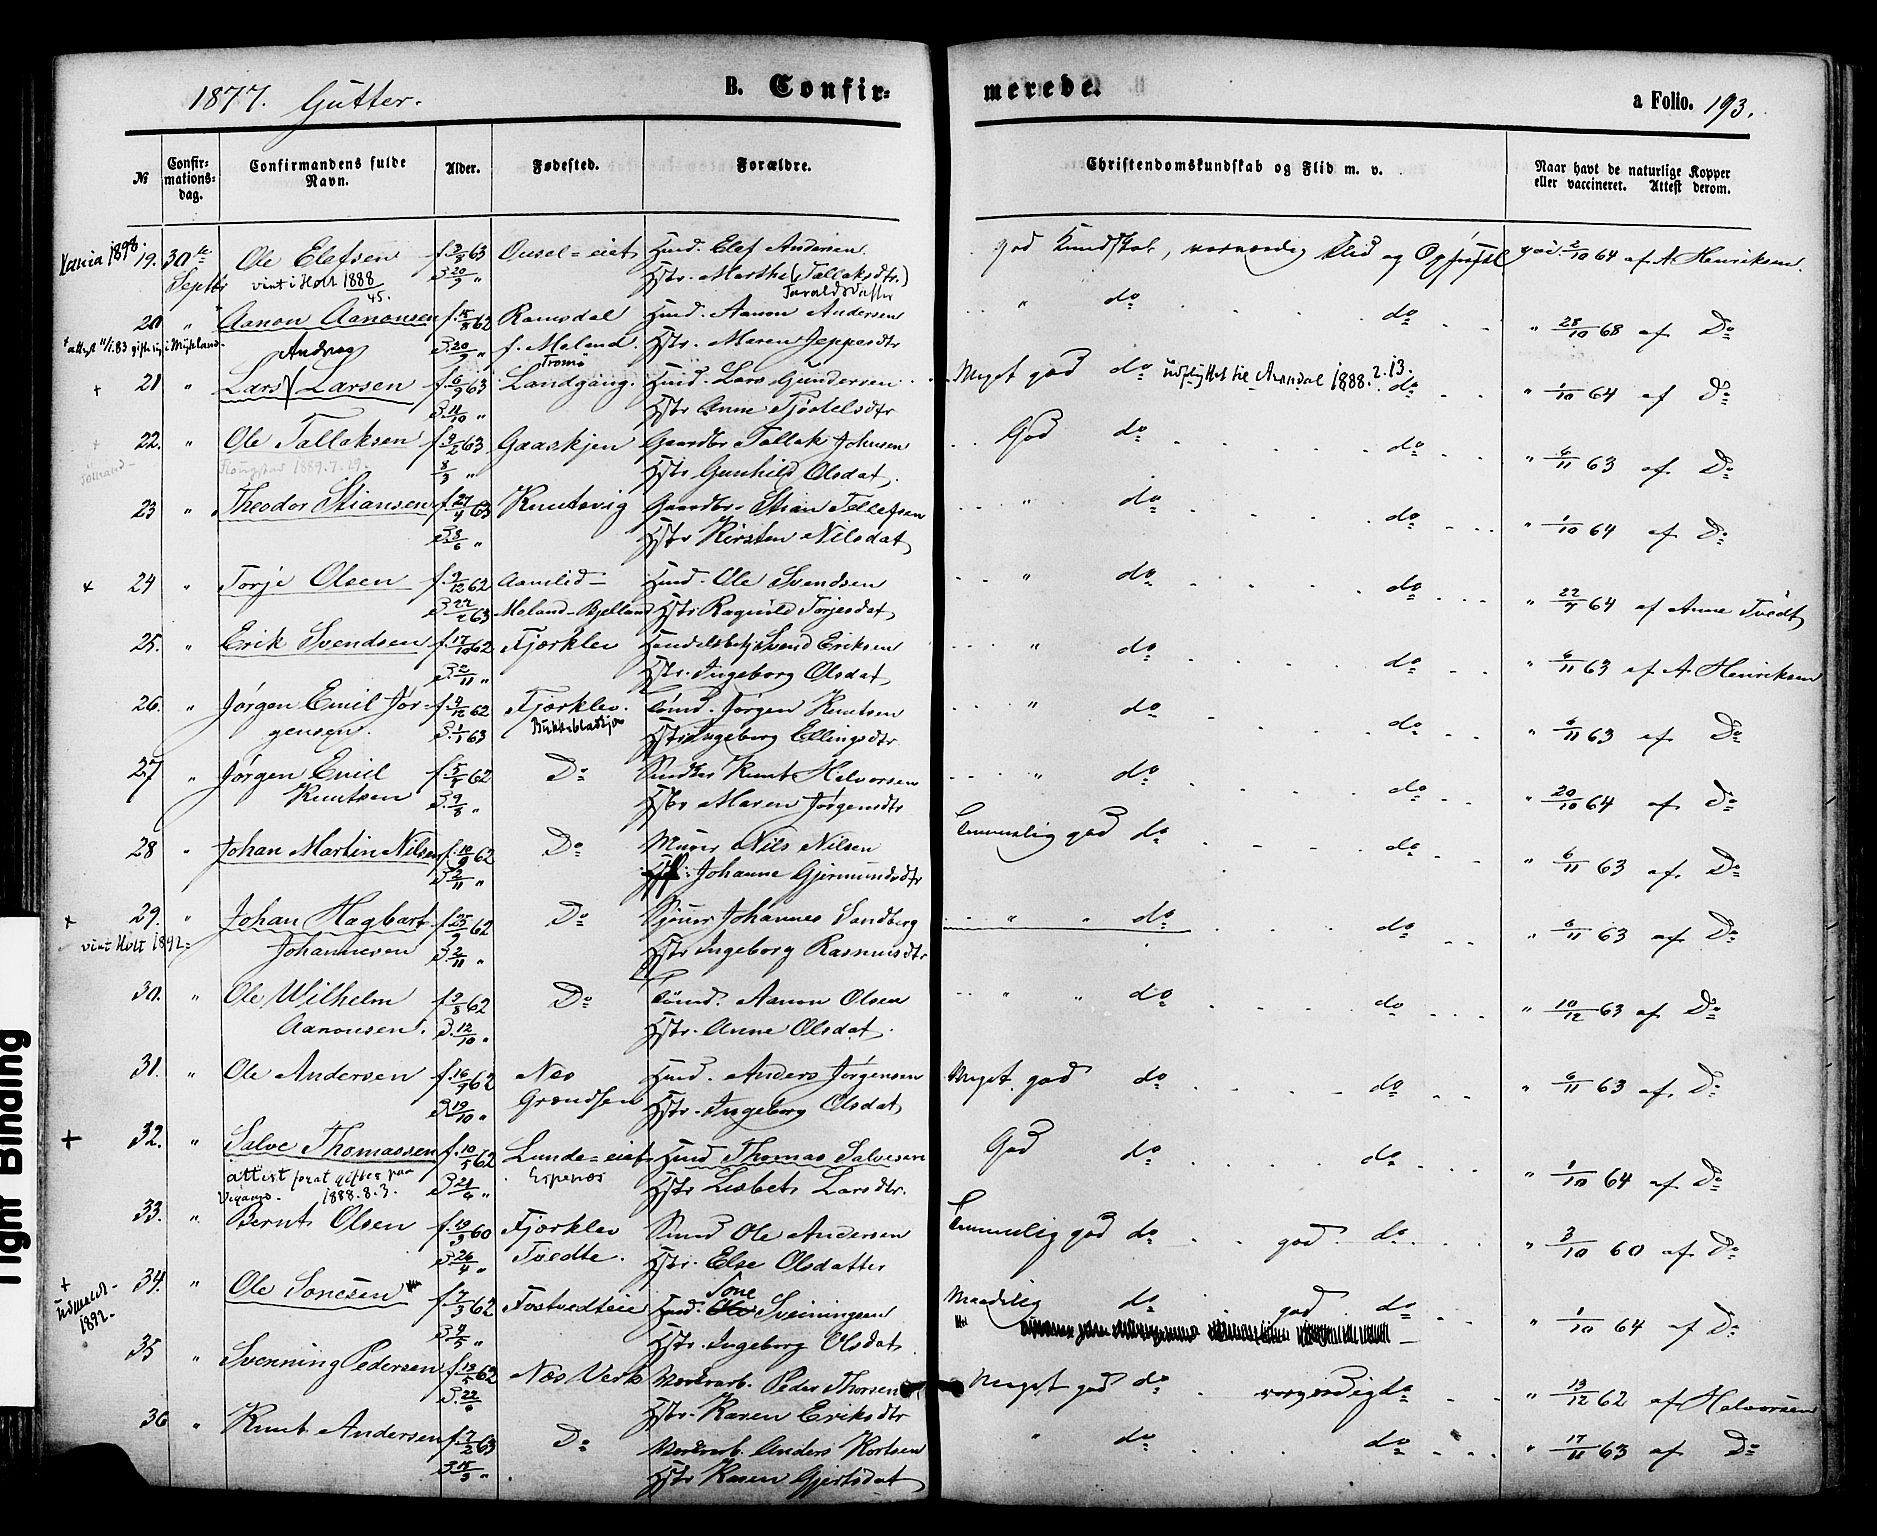 1877. Gutter.
B. Confir-
merede.
a Folio. 193.
№
Confir-
mations-
dag.
Confirmandens fulde
Navn.
Alder.
Fødested.
Forældre.
Christendomskundskab og Flid m. v.
Naar havt de naturlige Kopper
eller vaccineret. Attest derom.
19. 30te Ole Elefsen f. 3/8 63 Ousel-eiet Husmd. Elef Andersen god Kundskab, Flid og Opførsel 2/10 64 af A. Henriksen.
Septbr vint i Holt 1888 D. 20/9 " Hstr. Marthe (Tallaksdtr.)
45. Taraldsdatter
20 " Aanon Aanonsen f. 15/8 62 Ramsdal Husmd. Aanon Andersen " do do " 28/10 68 af Do
D. 20/9 " f. Moland. Hstr. Maren Jeppesdtr
Tromø
21 " Lars Larsen f. 6/9 63 Landgang. Husmd. Lars Gundersen Meget god do udflyttet til Arendal 1888.2.13. do " 1/10 64 af Do
D. 11/10 " Hstr Anne
22. " Ole Tallaksen f. 3/2 63 Gaaskjen Gaardbr Tallak Johnsen God do do " 6/11 63 af Do
1889.7.29. 8/3 " Hstr Gunhild Olsdat.
23 " Theodor Stiansen f. 27/4 63 Knutsvig Gaardbr. Stian Tellefsen " do do " 1/10 64 af Do
D. 3/6 " Hstr Kirsten Nilsdat
+ 24 " Torje Olsen f. 9/12 62 Aamlid- Husmd. Ole Svendsen " do do " 22/7 64 af Anne Tvedt
D. 22/2 63 Moland-Bjelland Hstr. Ragnild Torjesdat
25. " Erik Svendsen f. 17/10 62 Fjærklev Svend Eriksen " do do " 6/11 63 af A. Henriksen
D. 2/11 " Hstr. Ingeborg Olsdat
26. " Jørgen Emil Jør- f. 9/12 62 Fjærklev. Jørgen Knutsen " do do " 6/11 63 af Do
gensen. D. 1/1 63 Hstr. Ingeborg Ellingsdtr
27 " Jørgen Emil f. 5/7 62 Do Knut Halvorsen " do do " 20/10 64 af Do
Knutsen D. 9/8 " Hstr Maren Jørgensdtr
28 " Johan Martin Nilsen f. 10/9 62 Do Murer Nils Nilsen Temmelig god do do " 6/11 63 af Do
D. 2/11 " Johanne Gjermundsdtr
+ 29. " Johan Hagbart f. 25/9 62 Do Johannes Sandberg " " do do " 6/11 63 af Do
vint Holt 1892 Johannesen D. 2/11 " Hstr Ingeborg Rasmusdtr
30. " Ole Wilhelm f. 9/8 62 Do Aanon Olsen " " do do " 10/12 63 af Do
Aanonsen. D. 12/10 " Hstr. Anne Olsdat.
31. " Ole Andersen f. 16/9 62 Næs Husmd. Anders Jørgensen Meget god do do " 6/11 63 af Do
D. 19/10 " Hstr. Ingeborg Olsdat
+ 32. " Salve Thomassen f. 10/5 62 Lunde-eiet Husmd Thomas Salvesen God do do " 1/10 64 af Do
attest 1888.8.3. D. 21/6 " Espenæs Hstr Lisbet Larsdtr.
33. " Bernt Olsen f. 19/3 60 Fjærklev Ole Andersen Temmelig god do god do " 3/10 60 af Do
D. 26/4 " Tvedte. Hstr. Else Olsdatter
+ 34. " Ole Sonesen f. 7/3 62 Fostvedteie Husmd. Sone Sveiningsen Maadelig do god do " 1/10 64 af Do
udmeldt 1892. D. 4/5 " Hstr. Ingeborg Olsdat
35 " Svenning Pedersen f. 13/5 62 Næs Verk Peder Thorsen Meget god do do " 13/12 62 af Halvorsen
D. 22/6 Hstr. Karen Eriksdtr
36 " Knut Andersen f. 7/2 63 Do Anders Kortsen " do do " 17/11 63 af Do
D. 15/3 " Hstr Karen Gjertsdat
Tight Binding